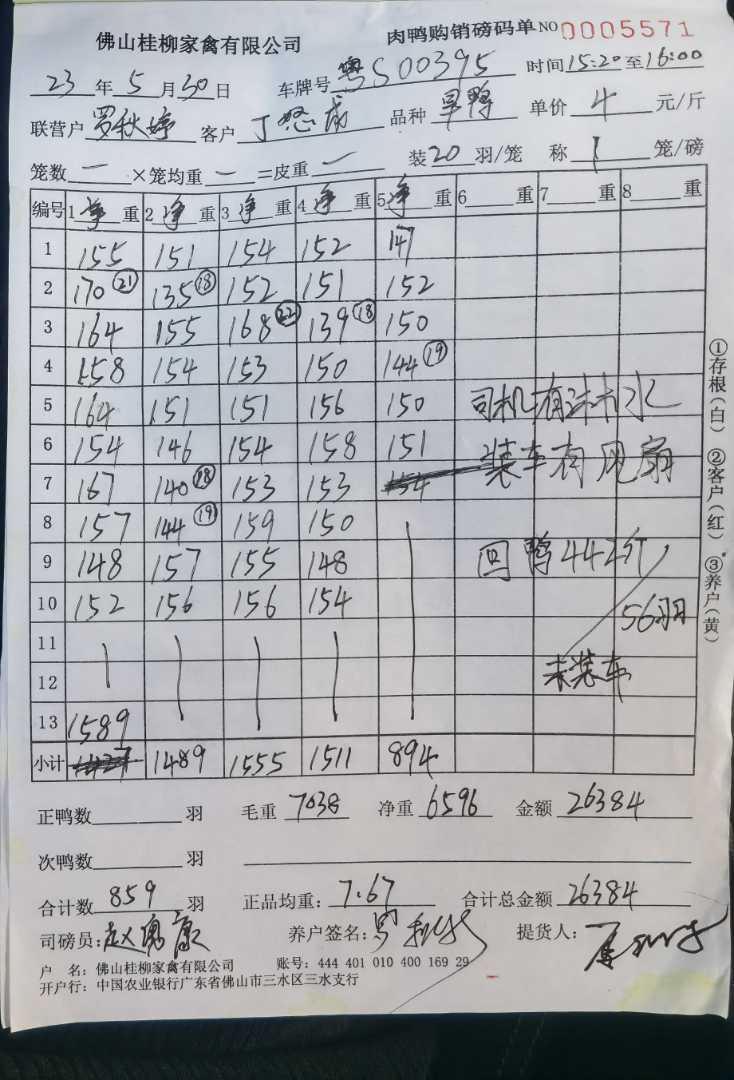 佛山桂柳家禽有限公司 肉鸭购销磅码单 NO 0005571
23 年 5 月 30 日 车牌号 粤S00395 时间 15:20 至 16:00
联营户 罗秋婷 客户 丁 品种 旱鸭 单价 4 元/斤
笼数 一 ×笼均重 一 =皮重 一 装 20 羽/笼 称 1 笼/磅
编号 1 净 重 2 净 重 3 净 重 4 净 重 5 净 重 6 重 7 重 8 重
1 155 151 154 152 147
2 170 (21) 135 (18) 152 151 152
3 164 155 168 (22) 139 (18) 150
4 158 154 153 150 144 (19)
5 164 151 151 156 150 司机有 水
6 154 146 154 158 151 装车有风扇
7 167 140 (18) 153 153 154
8 157 144 (19) 159 150
9 148 157 155 148 回鸭442斤
10 152 156 156 154 56羽
11
12 未装车
13 1589
小计 1489 1555 1511 894
正鸭数 羽 毛重 7038 净重 6596 金额 26384
次鸭数 羽
合计数 859 羽 正品均重: 7.67 合计总金额 26384
司磅员: 赵 康 养户签名: 罗 提货人:
户 名: 佛山桂柳家禽有限公司 账号: 444 401 010 400 169 29
开户行: 中国农业银行广东省佛山市三水区三水支行
①存根(白) ②客户(红) ③养户(黄)